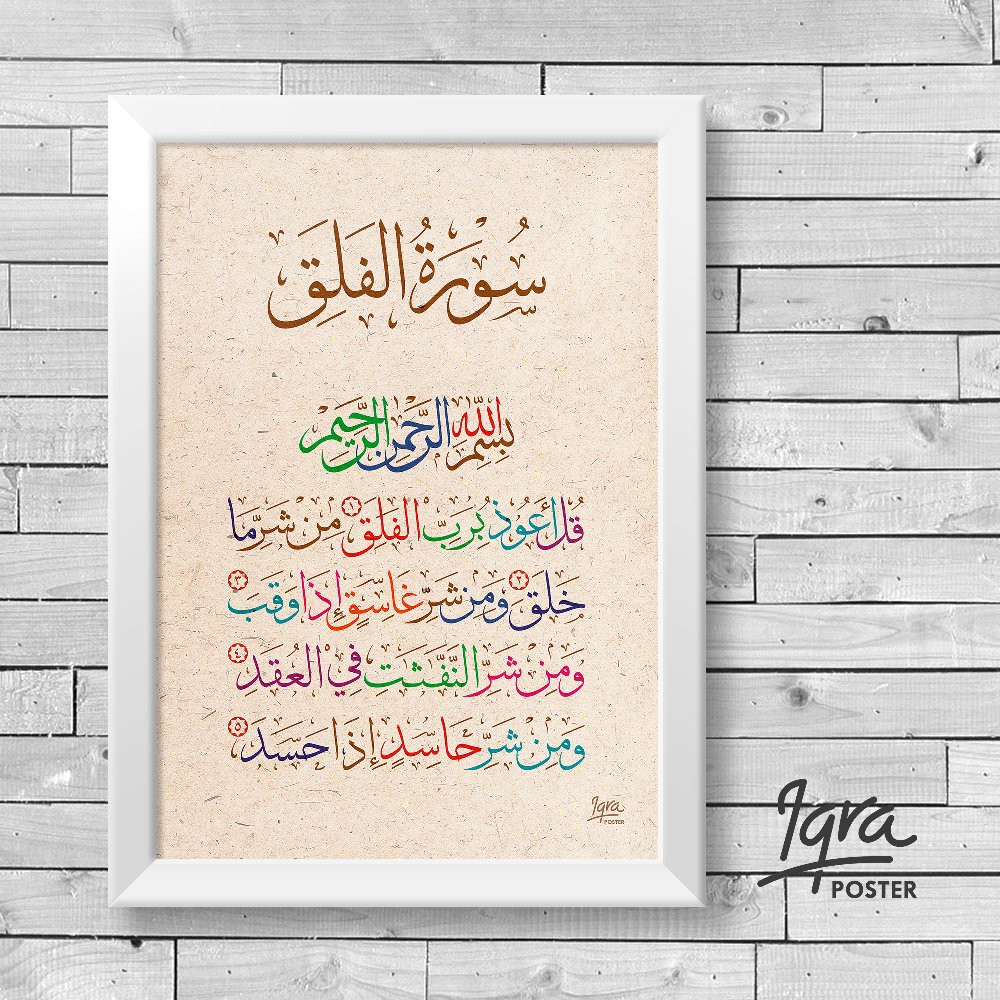 سُورَةُ الفَلِقَ
بِسْمِ اللَّهِ الرَّحْمَنِ الرَّحِيمِ
قُلْ أَعُوذُ بِرَبِّ الفَلَقِ ١ مِن شَرِّ مَا
خَلَقَ ٢ وَمِن شَرِّ غَاسِقٍ إِذَا وَقَبَ ٣
وَمِن شَرِّ النَّفَّثَتِ فِي العُقَدِ ٤
وَمِن شَرِّ حَاسِدٍ إِذَا حَسَدَ ٥
Iqra
POSTER
Iqra
POSTER